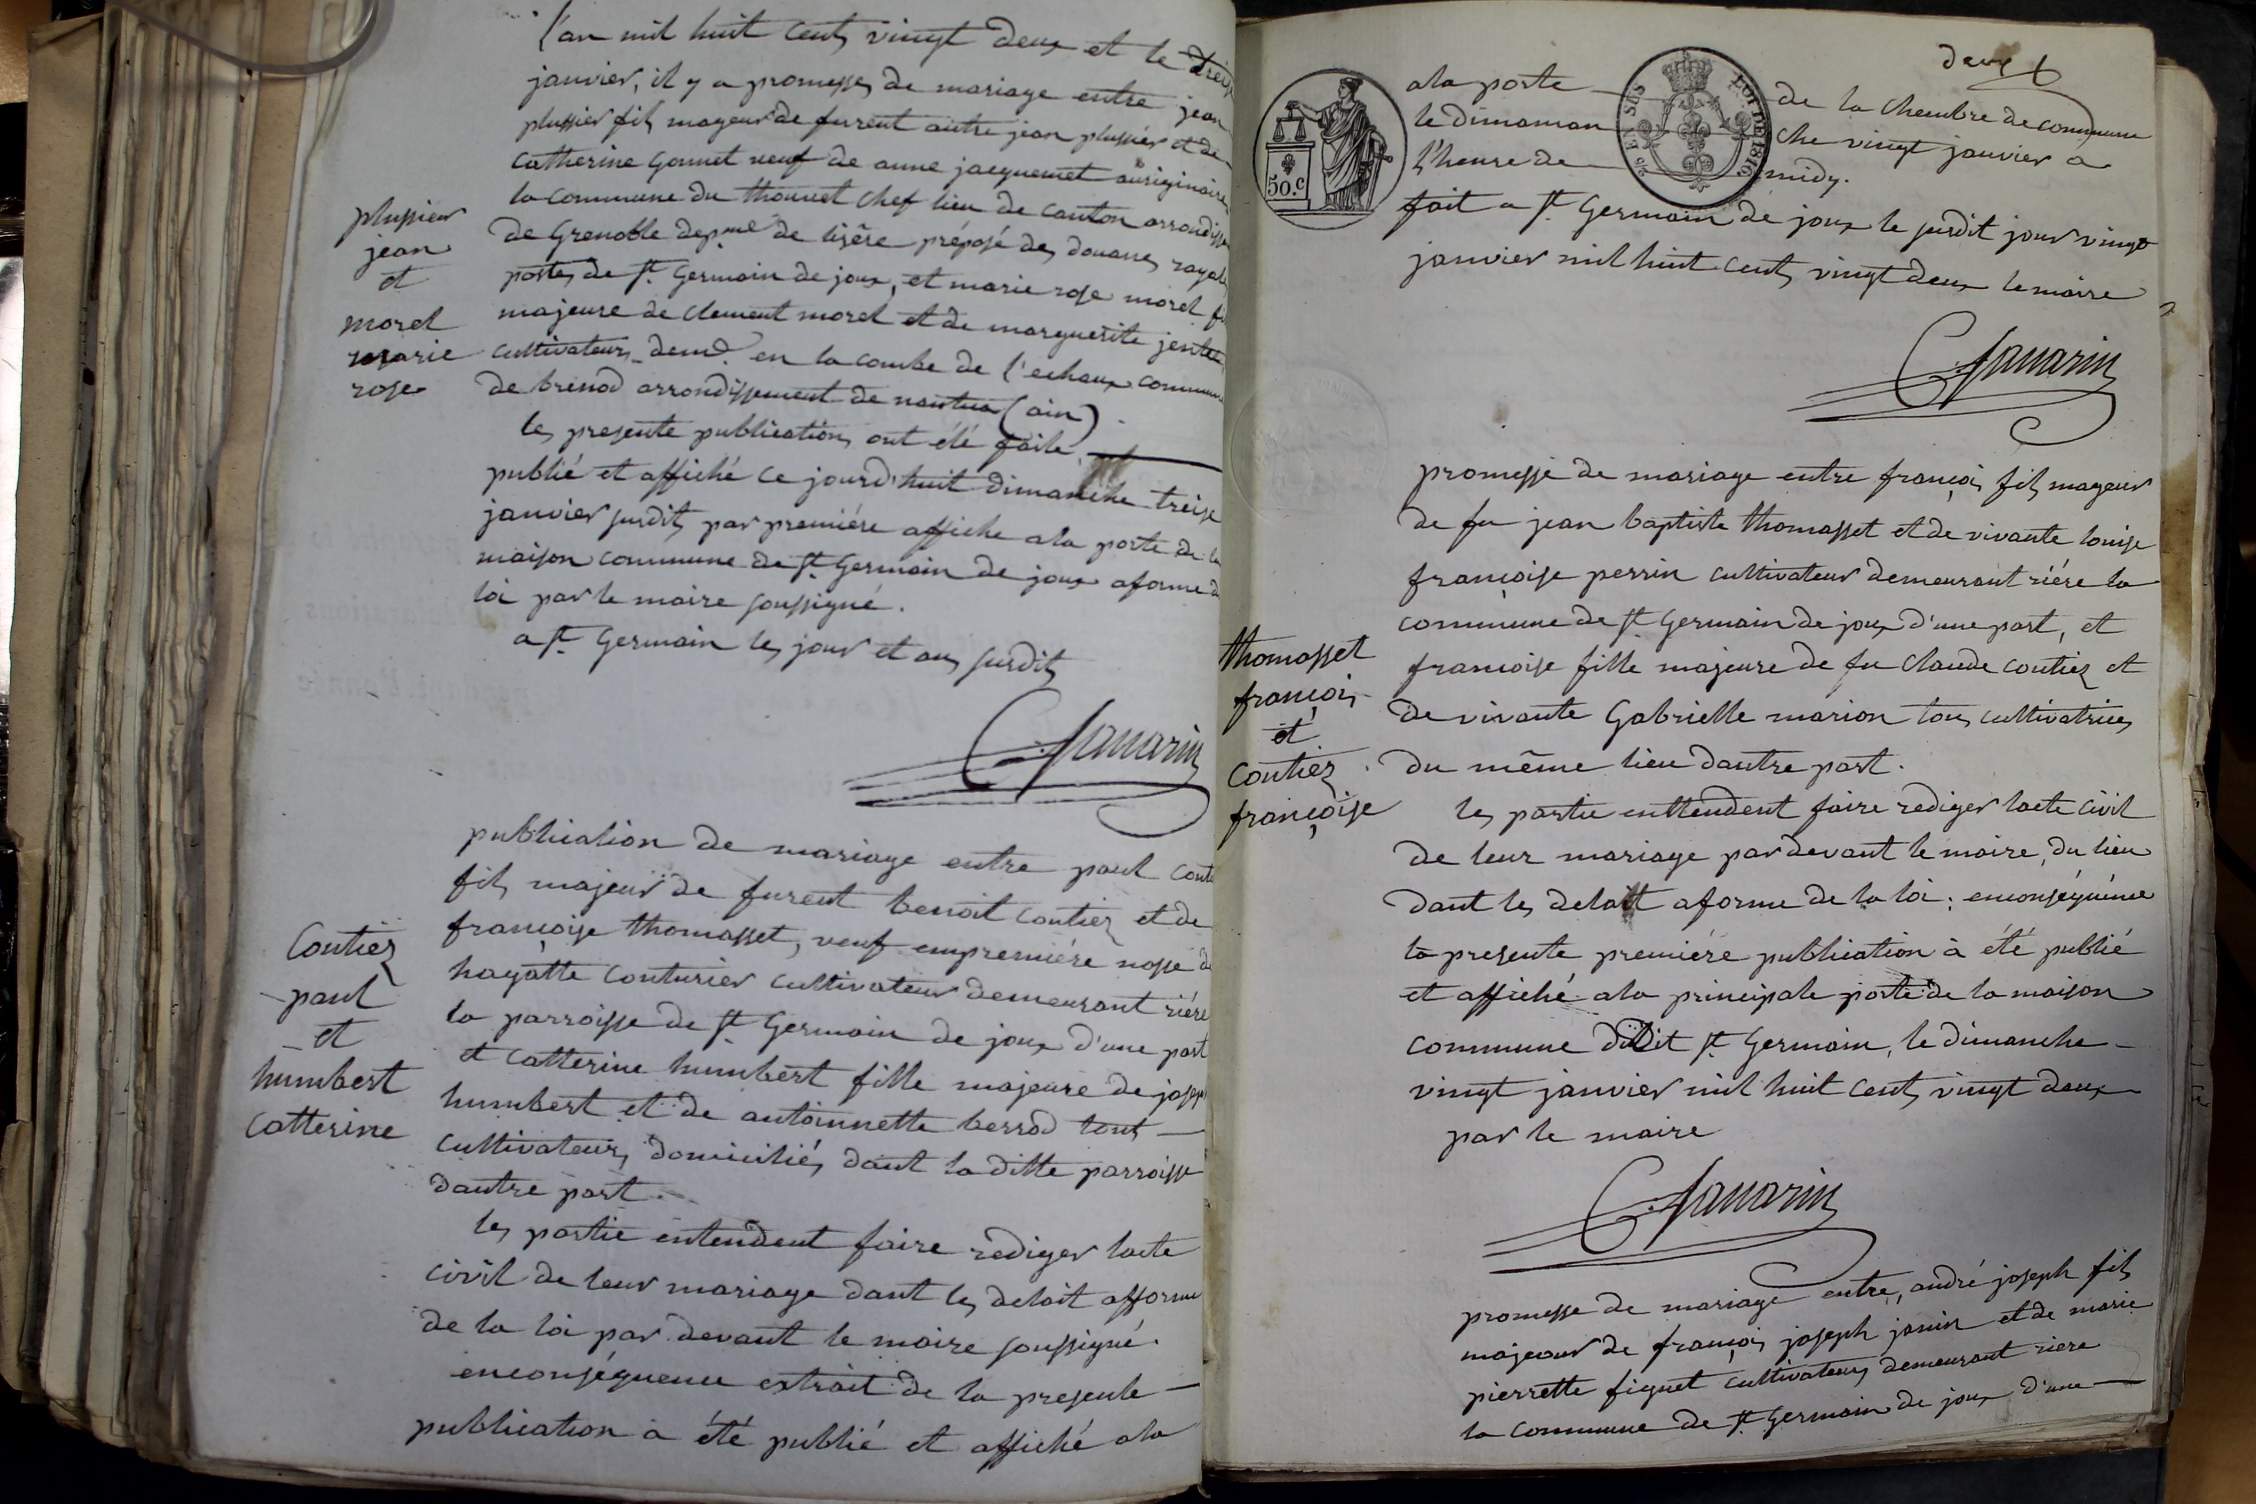 l'an mil huit cents vingt deux et le treize
janvier, il y a promesses de mariage entre jean
plussier fils mageur de furent autre jean plussier et de
catherine gonnet veuf de anne jacquemet auriginaire
la commune du thouvet chef lieu de canton arrondisse
de Grenoble depmt de lisère préposé des douanes royale
postes de st Germain de joux, et marie rose morel fi
majeure de clement morel et de marguerite jentet
cultivateurs demt en la combe de l'echaux commune
de brenod arrondissement de nantua (ain)
plussier
jean
et
morel
marie
rose
les presente publications ont été faite
publié et affiché ce jourd'huit dimanche treise
janvier susdits par première affiche ala porte de la
maison commune de st Germain de joux aforme d
loi par le maire soussigné.
a st Germain les jour et ans susdits
C. Savarin
publication de mariage entre paul Couti
fils majeur de furent benoit coutiez et de
françoise thomasset, veuf empremière nosse d
hayatte couturier cultivateur demeurant rière
la parroisse de st Germain de joux d'une part
et catterine humbert fille majeure de joseph
humbert et de antoinnette berrod tout
cultivateurs domiciliés dant la ditte parroisse
dautre part.
Coutiez
paul
et
humbert
catterine
les partie entendent faire rediger lacte
civil de leur mariage dant les delait afforme
de la loi par devant le maire soussigné.
enconséquence extrait de la presente
publication à été publié et affiché ala
deux
50.c
LOI DE 1816
ala porte de la chambre de commune
le dimaman che vingt janvier a
l'heure de midy.
fait a st Germain de joux le susdit jour vingt
janvier mil huit cents vingt deux le maire
C. Savarin
promesse de mariage entre françois fils mageur
de fu jean baptiste thomasset et de vivante louise
françoise perrin cultivateur demeurant rière la
commune de st Germain de joux d'une part, et
francoise fille majeure de fu claude coutiez et
de vivante Gabrielle marion tous cultivatrices
du même lieu dautre part.
thomasset
françois
et
Coutiez
françoise
les partie enttendent faire rediger lacte civil
de leur mariage pardevant le maire, du lieu
dant les delait aforme de la loi; enconséquence
la presente première publication à été publié
et affiché ala principale porte de la maison
commune dudit st Germain, le dimanche
vingt janvier mil huit cents vingt deux
par le maire
C. Savarin
promesse de mariage entre, andré joseph fils
majeour de françois joseph janin et de marie
pierrette figuet cultivateurs demeurant riere
la commune de st Germain de joux d'une